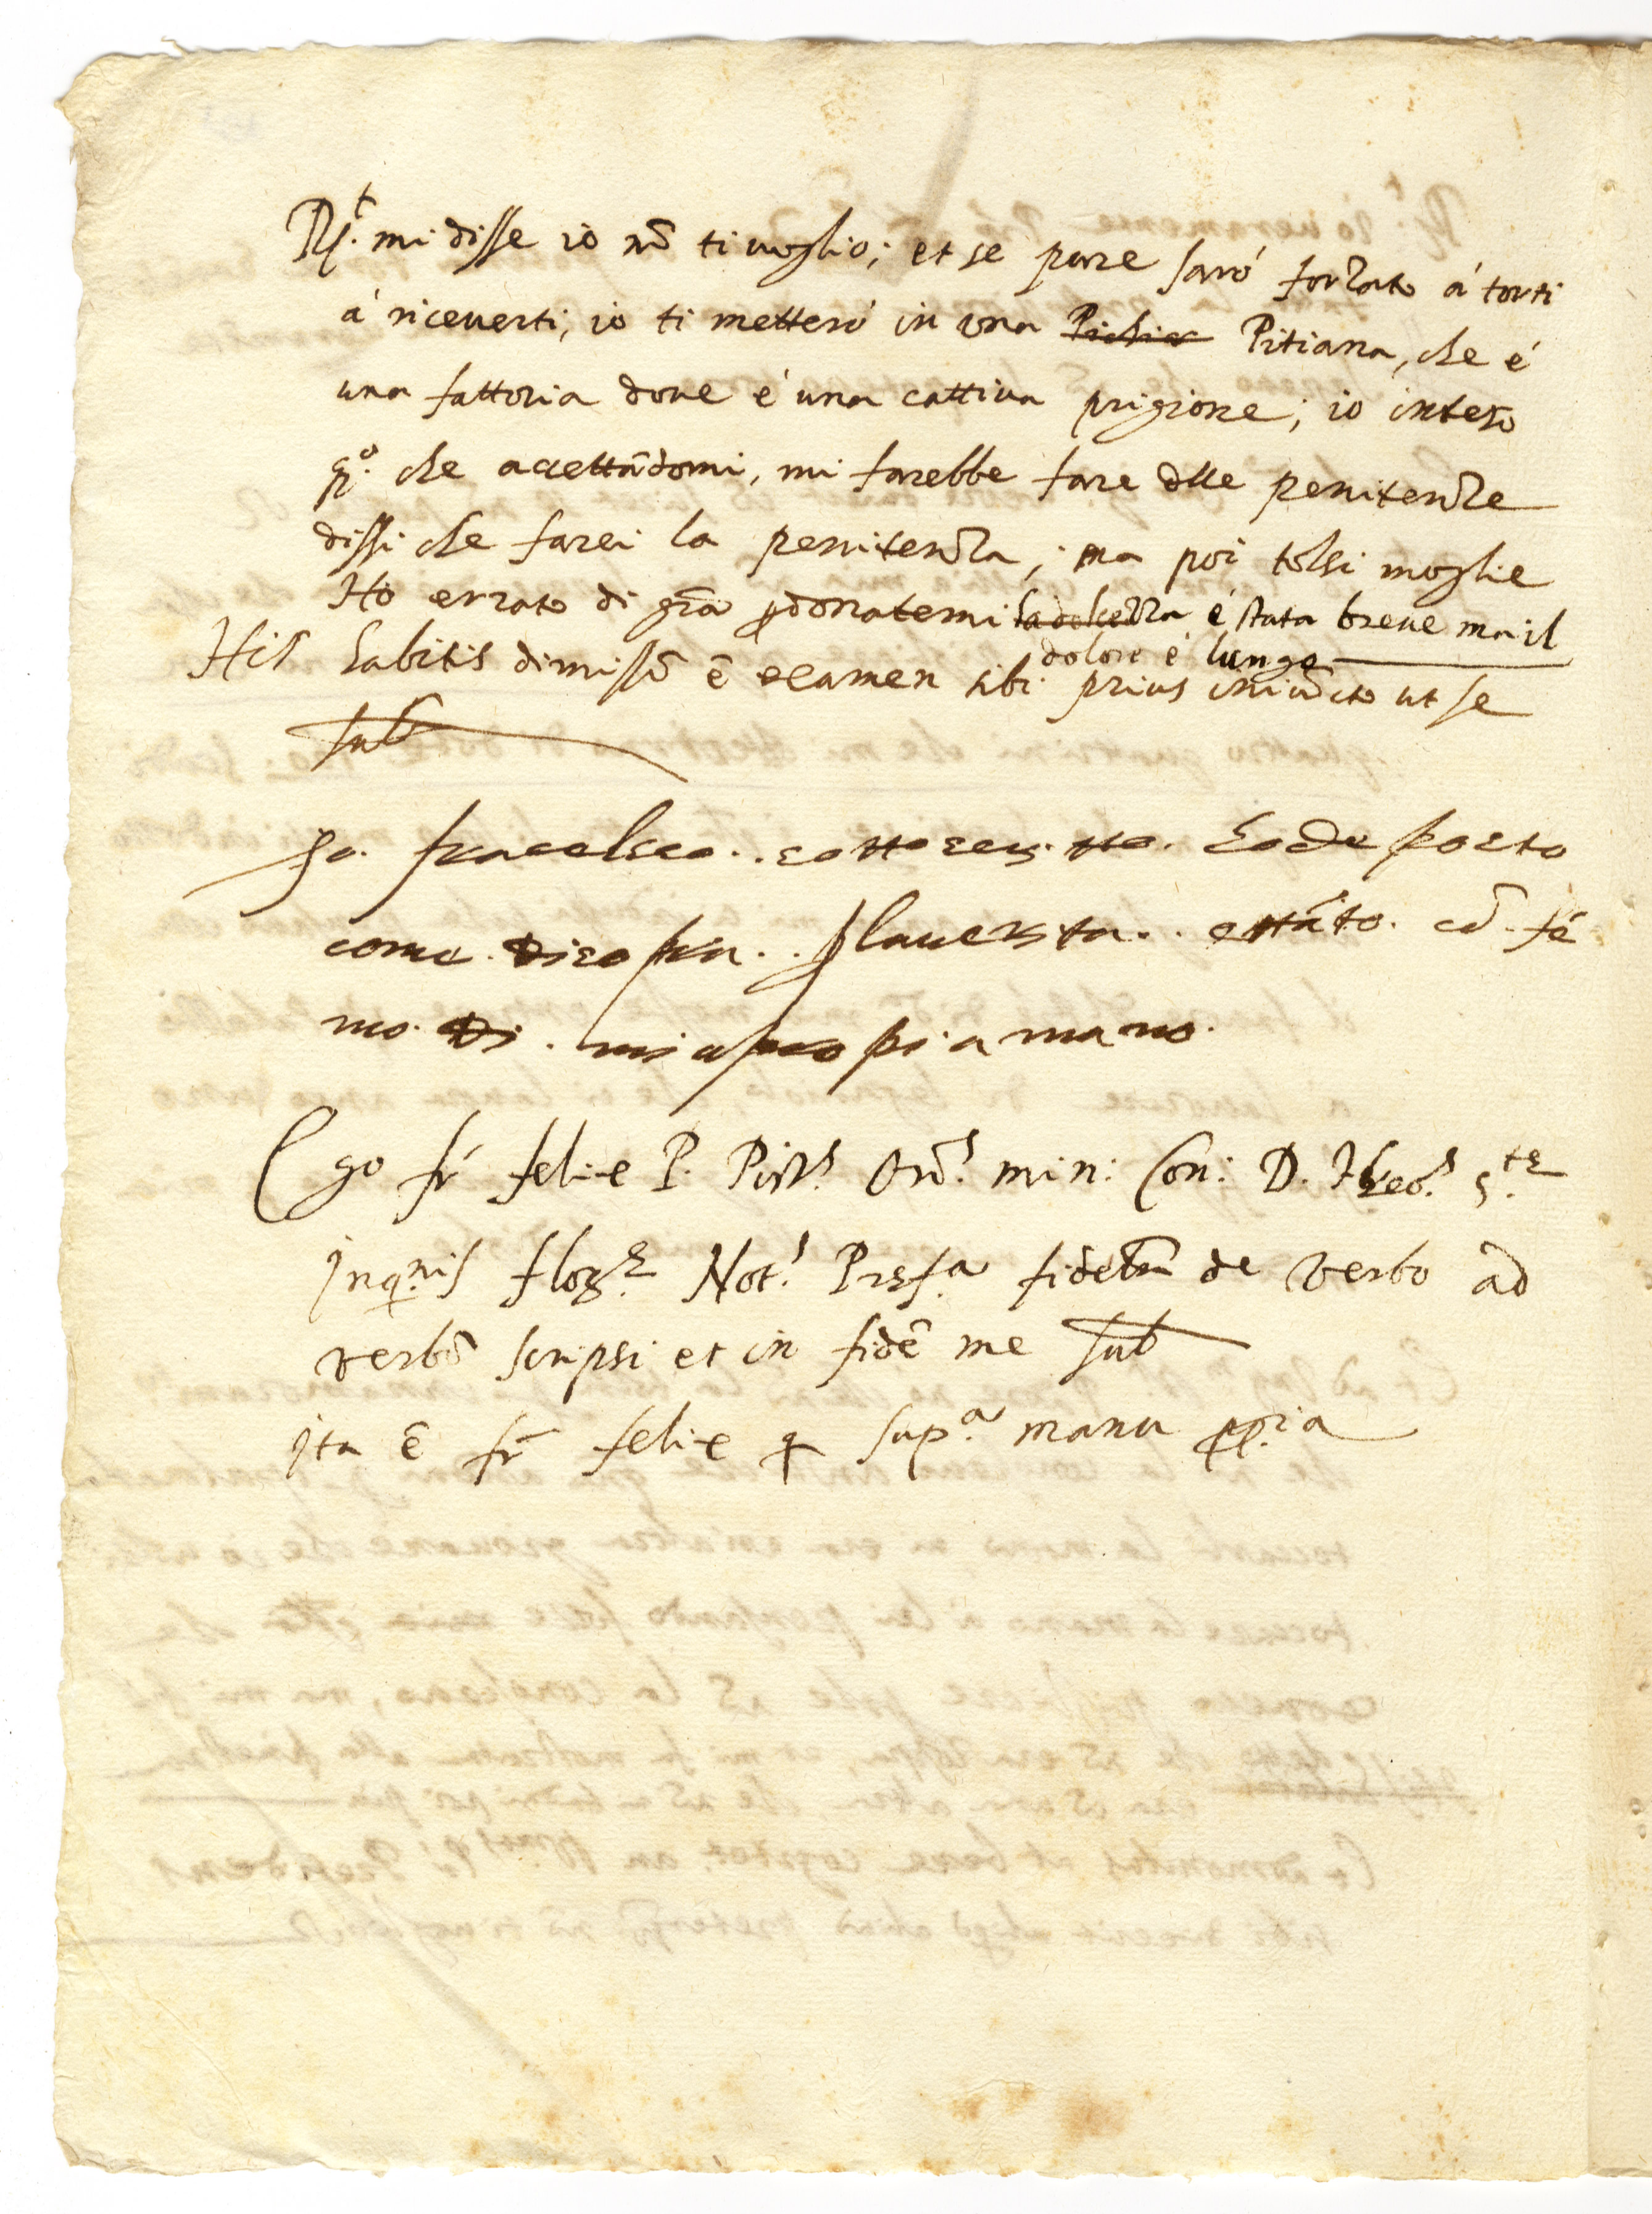 R.t mi disse io nō ti voglio; et se pure sarò forzato à torti
à riceverti, io ti metterò in una Pichia Pitiana, che è
una fattoria dove è una cattiva prigione; io inteso
q.o che accettādomi, mi farebbe fare dlle penitenze
dissi che farei la penitenza; ma poi tolsi moglie
Ho errato di gr̄a ꝑdonatemi la dolcezza è stata breve ma il
dolore è lungo
His habitis dimissū ē examen sibi prius iniūcto ut se
sub
Io francesco sotto scritto ho de posto
come dico pra la verita e tāto cō fe
mo di mia pro pia mano.
Ego fr̄ felice P. Pist.s Ord.s min: Con: D. Theo.s S.te
Inq.nis flor.e Not.s Presf.a fidełr de verbo ad
verbū scripsi et in fidē me sub
ita ē fr̄ felice q sup.a manu ꝓp.ia